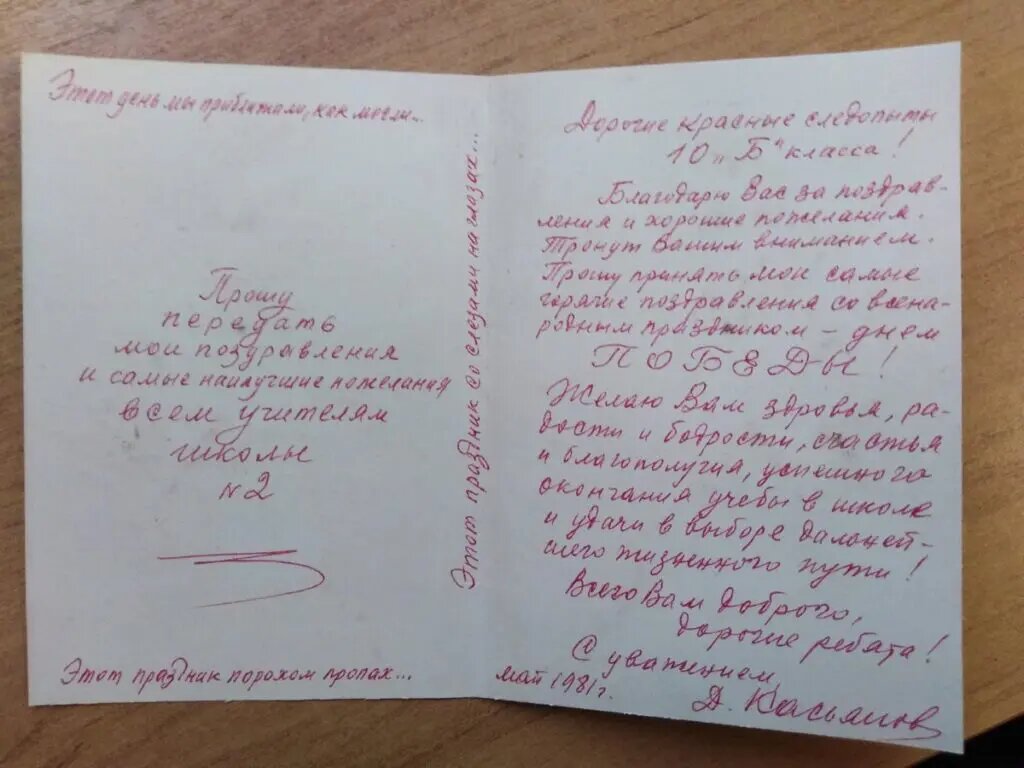 Этот день мы приближали, как могли...
Прошу
передать
мои поздравления
и самые наилучшие пожелания
всем учителям
школы
N2
Этот праздник порохом пропах...
Этот праздник со слезами на глазах...
Дорогие красные следопыты
10 „Б" класса!
Благодарю Вас за поздрав-
ления и хорошие пожелания.
Тронут Вашим вниманием.
Прошу принять мои самые
горячие поздравления со всена-
родным праздником - днем
ПОБЕДЫ!
Желаю Вам здоровья, ра-
дости и бодрости, счастья
и благополучия, успешного
окончания учебы в школе
и удачи в выборе дальней-
шего жизненного пути!
Всего Вам доброго,
дорогие ребята!
С уважением,
май 1981г.
Д. Касьянов